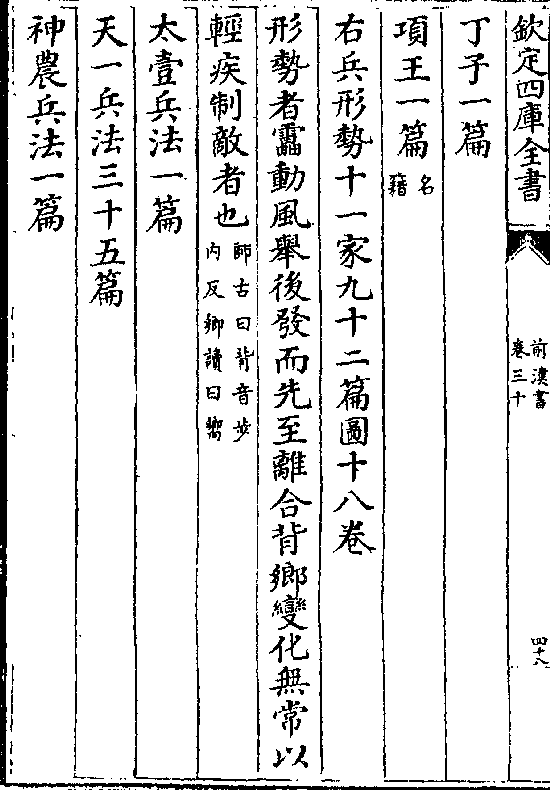 欽定四庫全書
前漢書
卷三十
四十八
丁子一篇
項王一篇
名
籍
右兵形勢十一家九十二篇圖十八卷
形勢者靁動風舉後發而先至離合背鄉變化無常以
輕疾制敵者也
師古曰背音步
内反鄉讀曰嚮
太壹兵法一篇
天一兵法三十五篇
神農兵法一篇